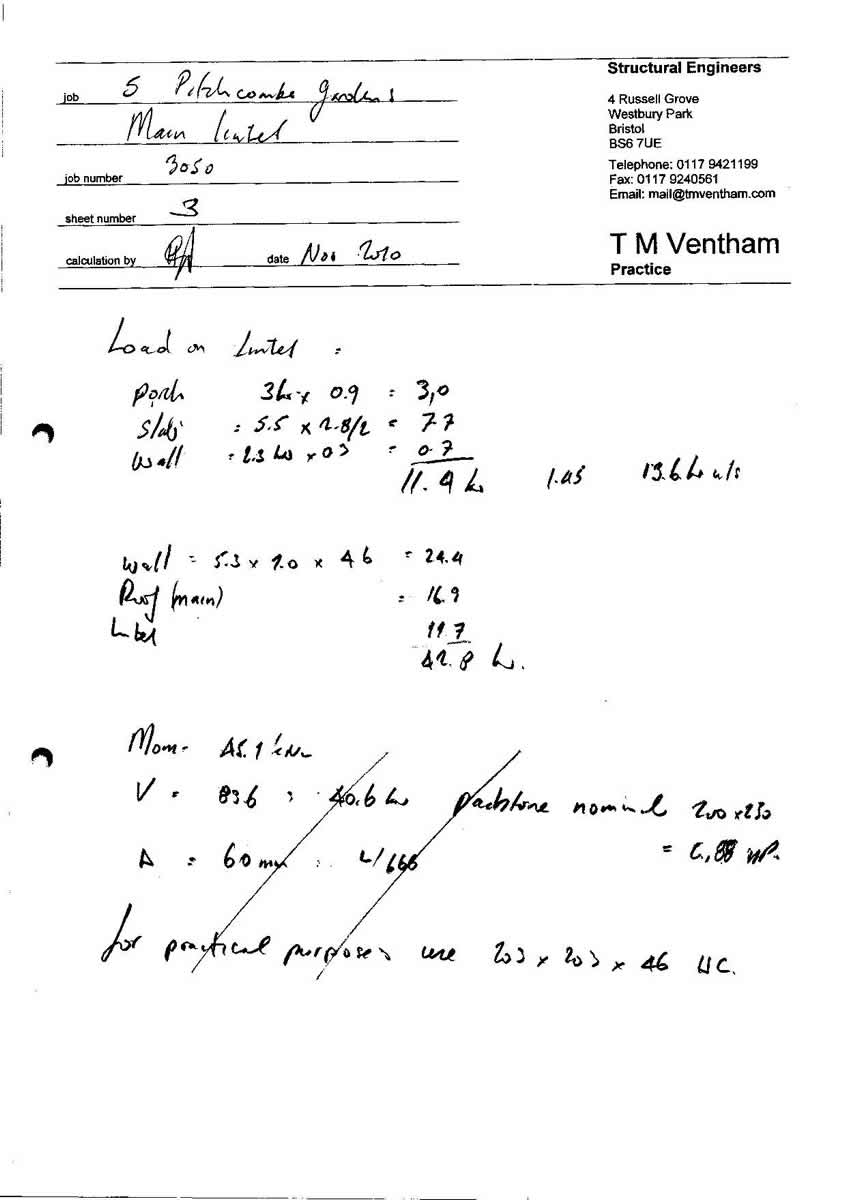 Structural Engineers
4 Russell Grove
Westbury Park
Bristol
BS6 7UE
Telephone: 0117 9421199
Fax: 0117 9240561
Email: mail@tmventham.com
T M Ventham
Practice
job 5 Pitchcombe Gardens
Main lintel
job number 3050
sheet number 3
calculation by
date Nov 2010
Load on Lintel =
Porch 3 x 0.9 = 3,0
Slab = 5.5 x 2.8/2 = 7.7
Wall = 2.3 x 03 = 0.7
11.4 1.45 13.6
Wall = 5.3 x 2.0 x 46 = 24.4
Roof (main) = 16.9
Lintel
42.8
Mom = 45.1
V = 83.6 : 40.6
padstone nominal 200 x 230
Δ = 60 mm : L/666
for practical purposes use 203 x 203 x 46 UC.